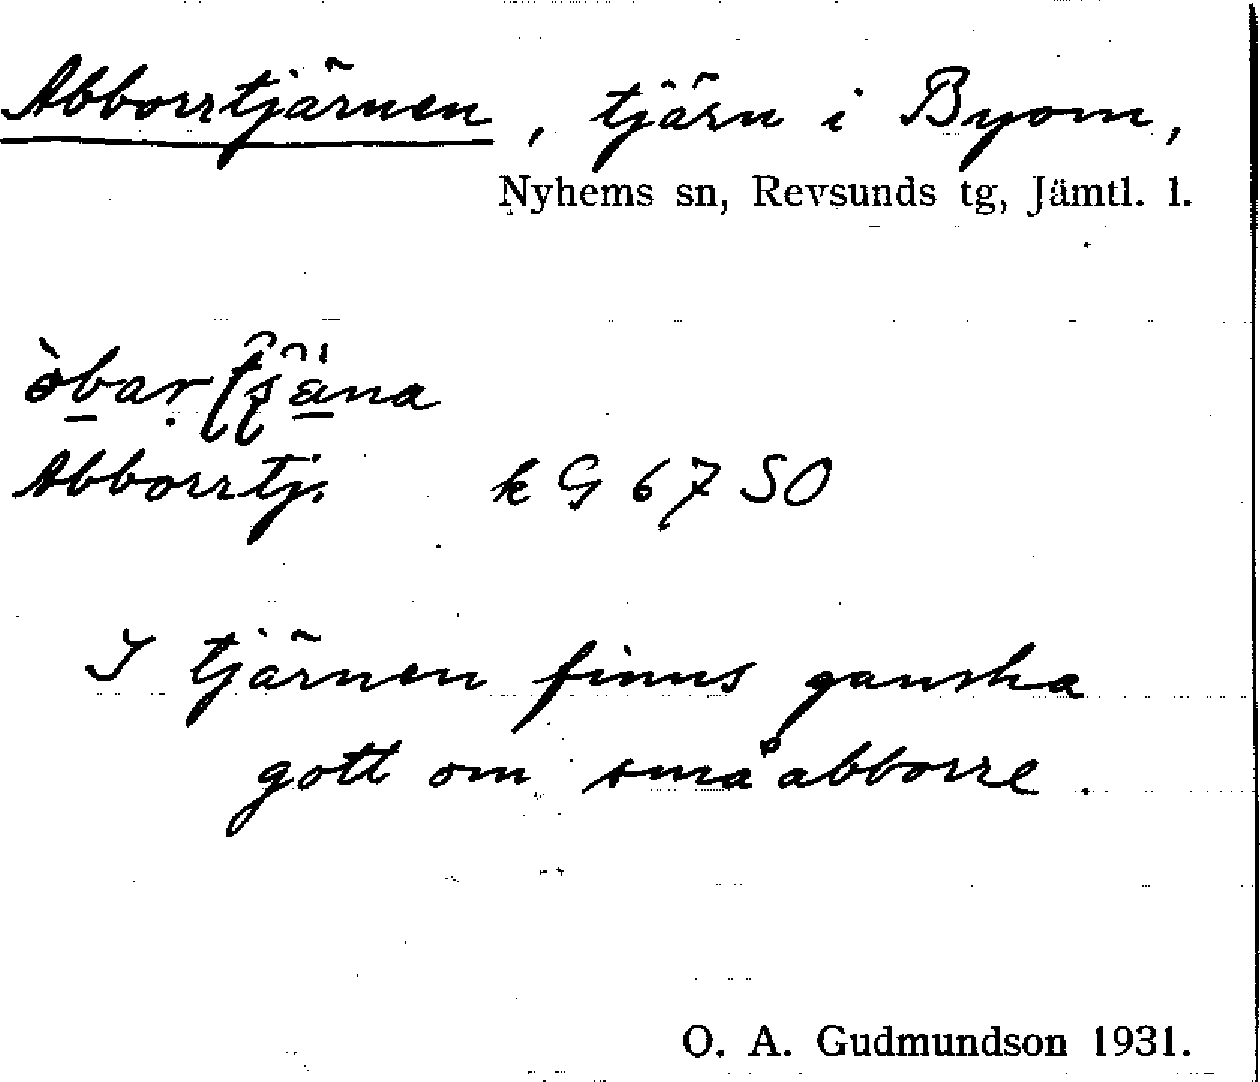 Abborrtjärnen, tjärn i Byom,
Nyhems sn, Revsunds tg, Jämtl. l.
Abborrtj. k G 67 SO
I tjärnen finns ganska
gott om småabborre.
O. A. Gudmundson 1931.